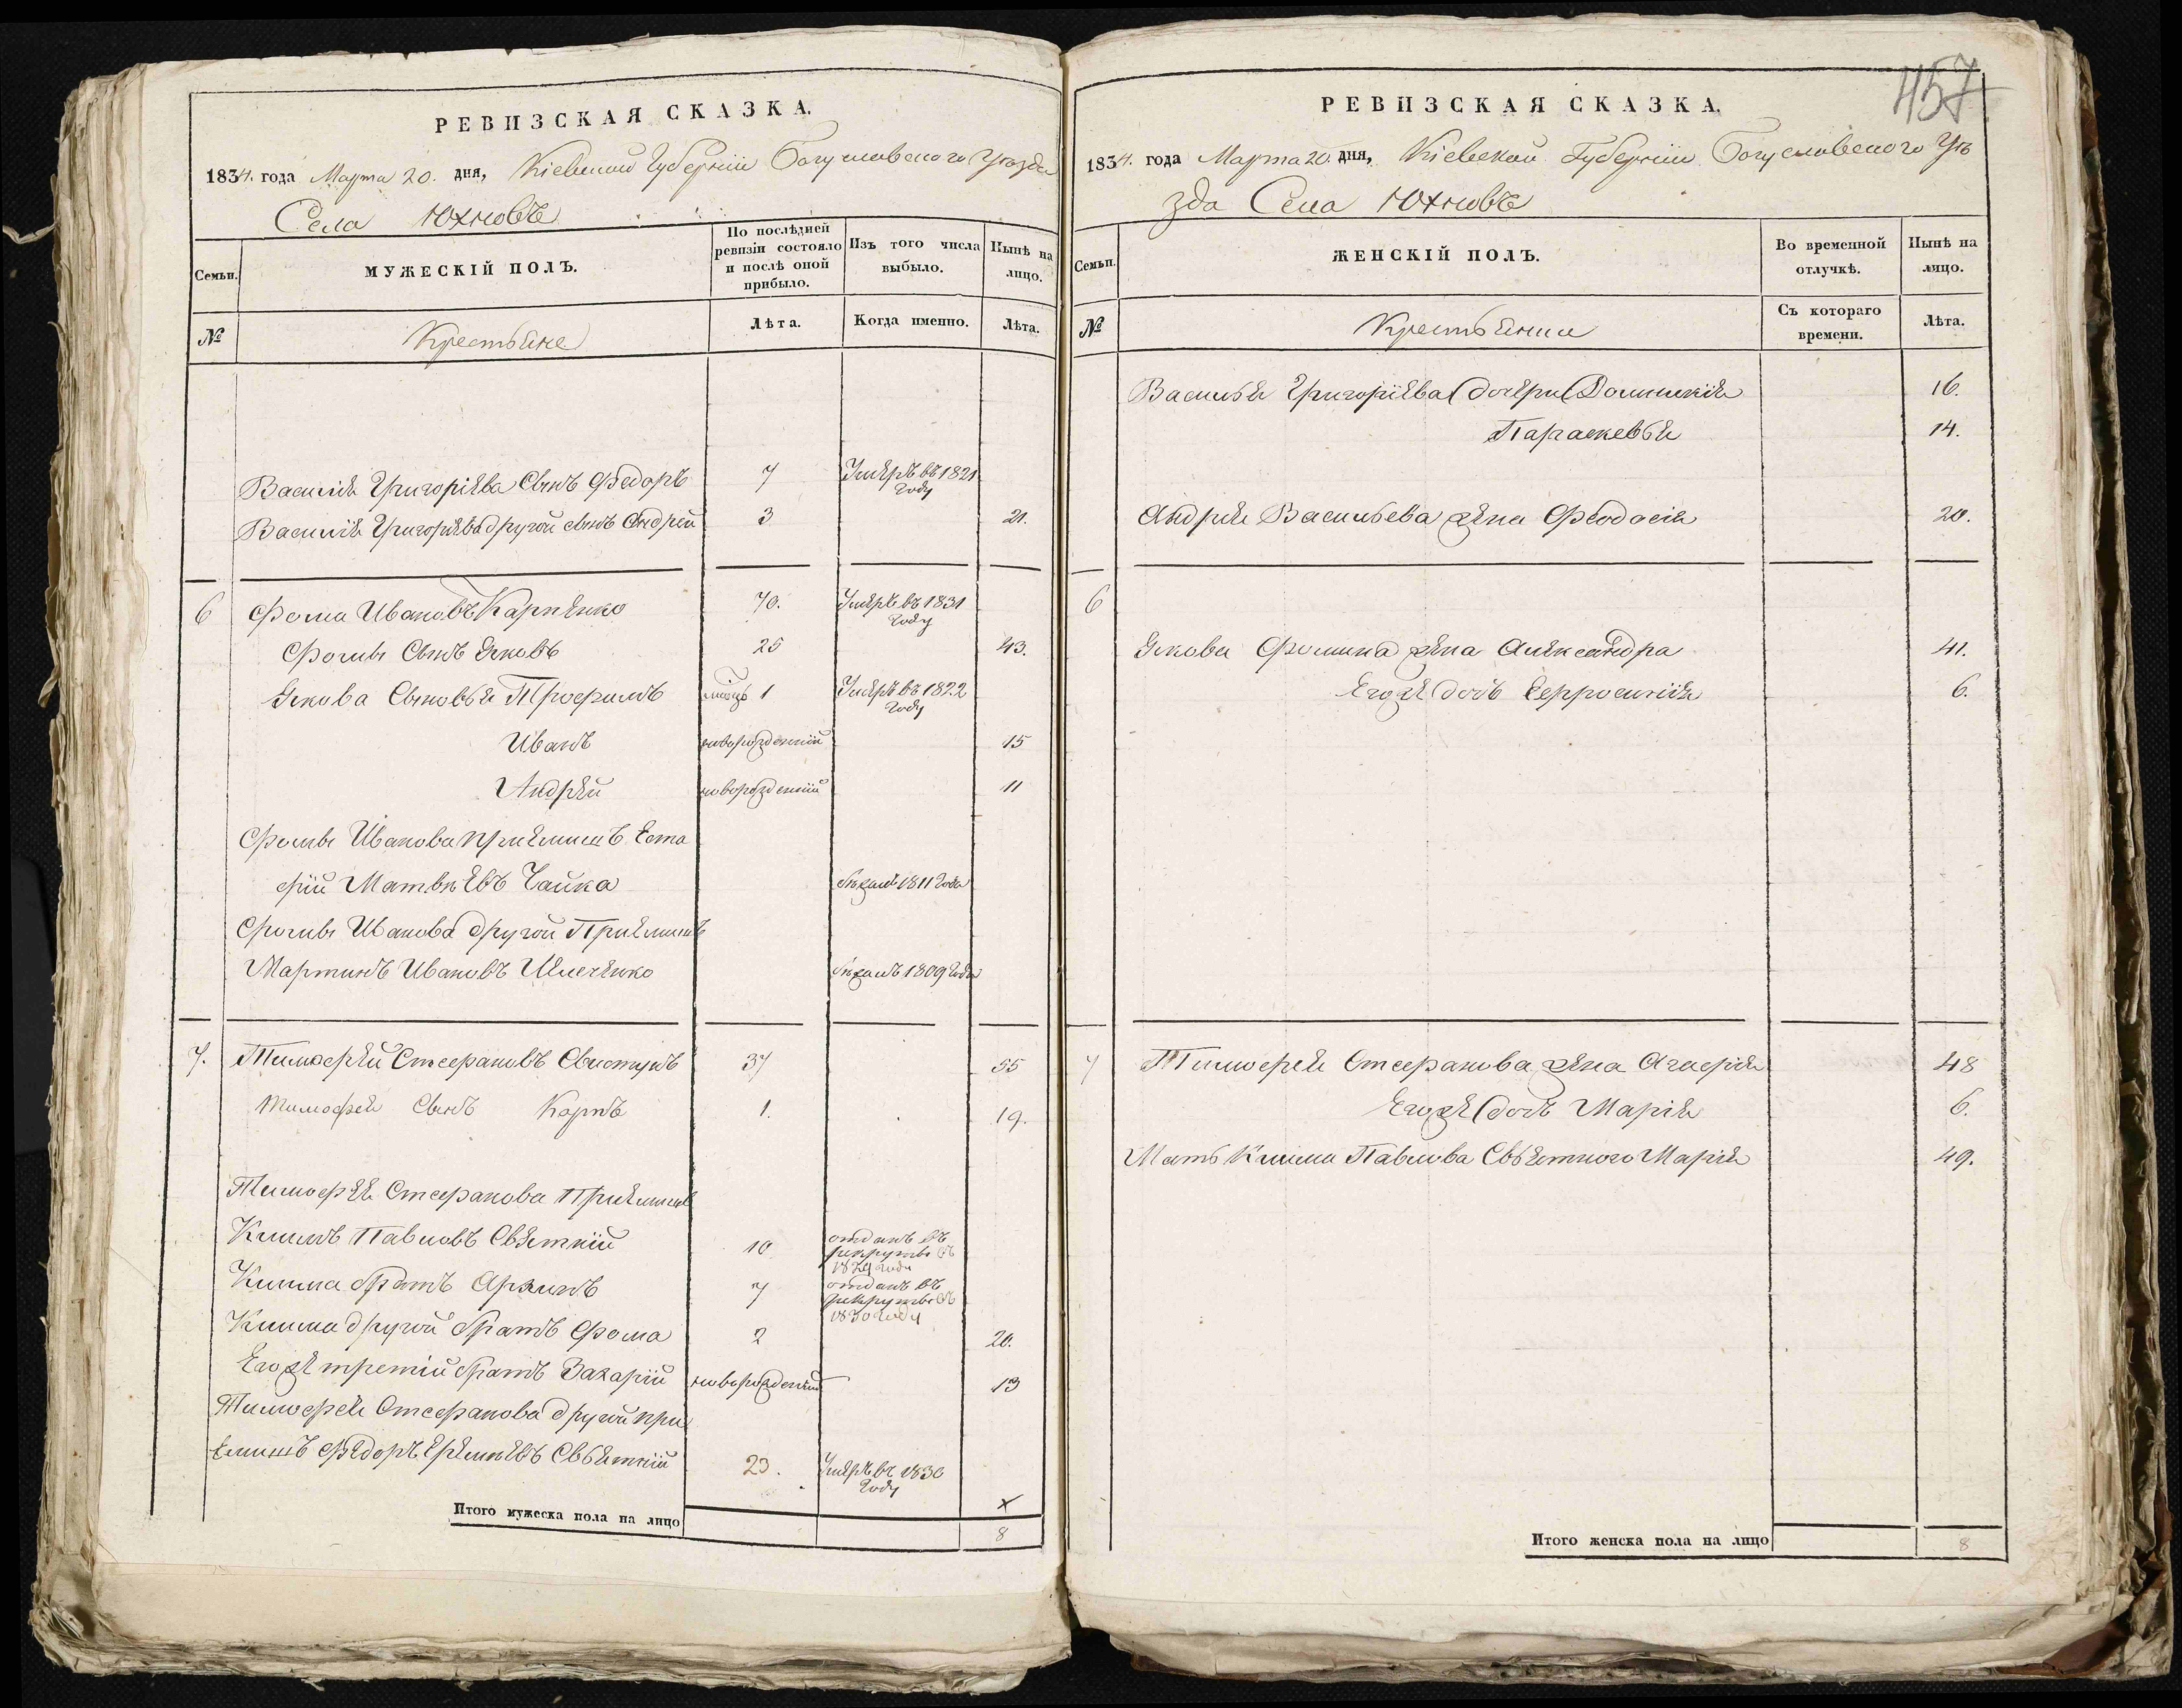 РЕВИЗСКАЯ СКАЗКА.
1834. года Марта 20. дня, Кіевской Губерніи Богуславского Уѣзда
Села Юхновъ
Семьи.
МУЖЕСКІЙ ПОЛЪ.
По послѣдней ревизіи состояло и послѣ оной прибыло.
Изъ того числа выбыло.
Нынѣ на лицо.
№
Крестьяне
Лѣта.
Когда именно.
Лѣта.
Василія Григоріева Сынъ Федоръ 7 Умеръ въ 1821 Году
Василія Григоріева другой сынъ Андрей 3 21.
6 Фома Ивановъ Карпенко 70. Умеръ въ 1831 Году
Фомы Сынъ Яковъ 26 43.
Якова Сыновья Трофимъ 1 Умеръ въ 1822 Году
Иванъ новорожденній 15
Андрей новорожденній 11
Фомы Иванова приемишъ Еста
фій Матвѣевъ Чайка бѣжалъ 1811 Года
Фомы Иванова другой Приемишъ
Мартинъ Ивановъ бѣжалъ 1809 Года
7. Тимофей Стефановъ Свистунъ 37 55
Тимофея Сынъ Карпъ 1. 19.
Тимофея Стефанова Приемишъ
Климъ Павловъ Святній 10 отданъ въ рекруты въ Года
Клима братъ 7 отданъ въ рекруты въ 1830 Году
Клима другой братъ Фома 2 20.
Его же третій братъ Захарій новорожденній 13
Тимофея Стефанова другой при
емишъ Федоръ Еремѣевъ Свьятній 23. Умеръ въ 1830 Году
х
Итого мужеска пола на лицо 8
457
РЕВИЗСКАЯ СКАЗКА.
1834. года Марта 20. дня, Кіевской Губерніи Богуславского Уѣ
зда Села Юхновъ
Семьи.
ЖЕНСКІЙ ПОЛЪ.
Во временной отлучкѣ.
Нынѣ на лицо.
№
Крестьянки
Съ котораго времени.
Лѣта.
Василья Григоріева дочери Домникія 16.
Параскевья 14.
Андрея Васильева жена Феодосія 20.
6
Якова Фомина жена Александра 41.
Его же дочь Ефросинія 6.
7 Тимофея Стефанова жена Агафія 48
Его же дочь Марія 6.
Мать Клима Павлова Свьятного Марія 49.
Итого женска пола на лицо 8